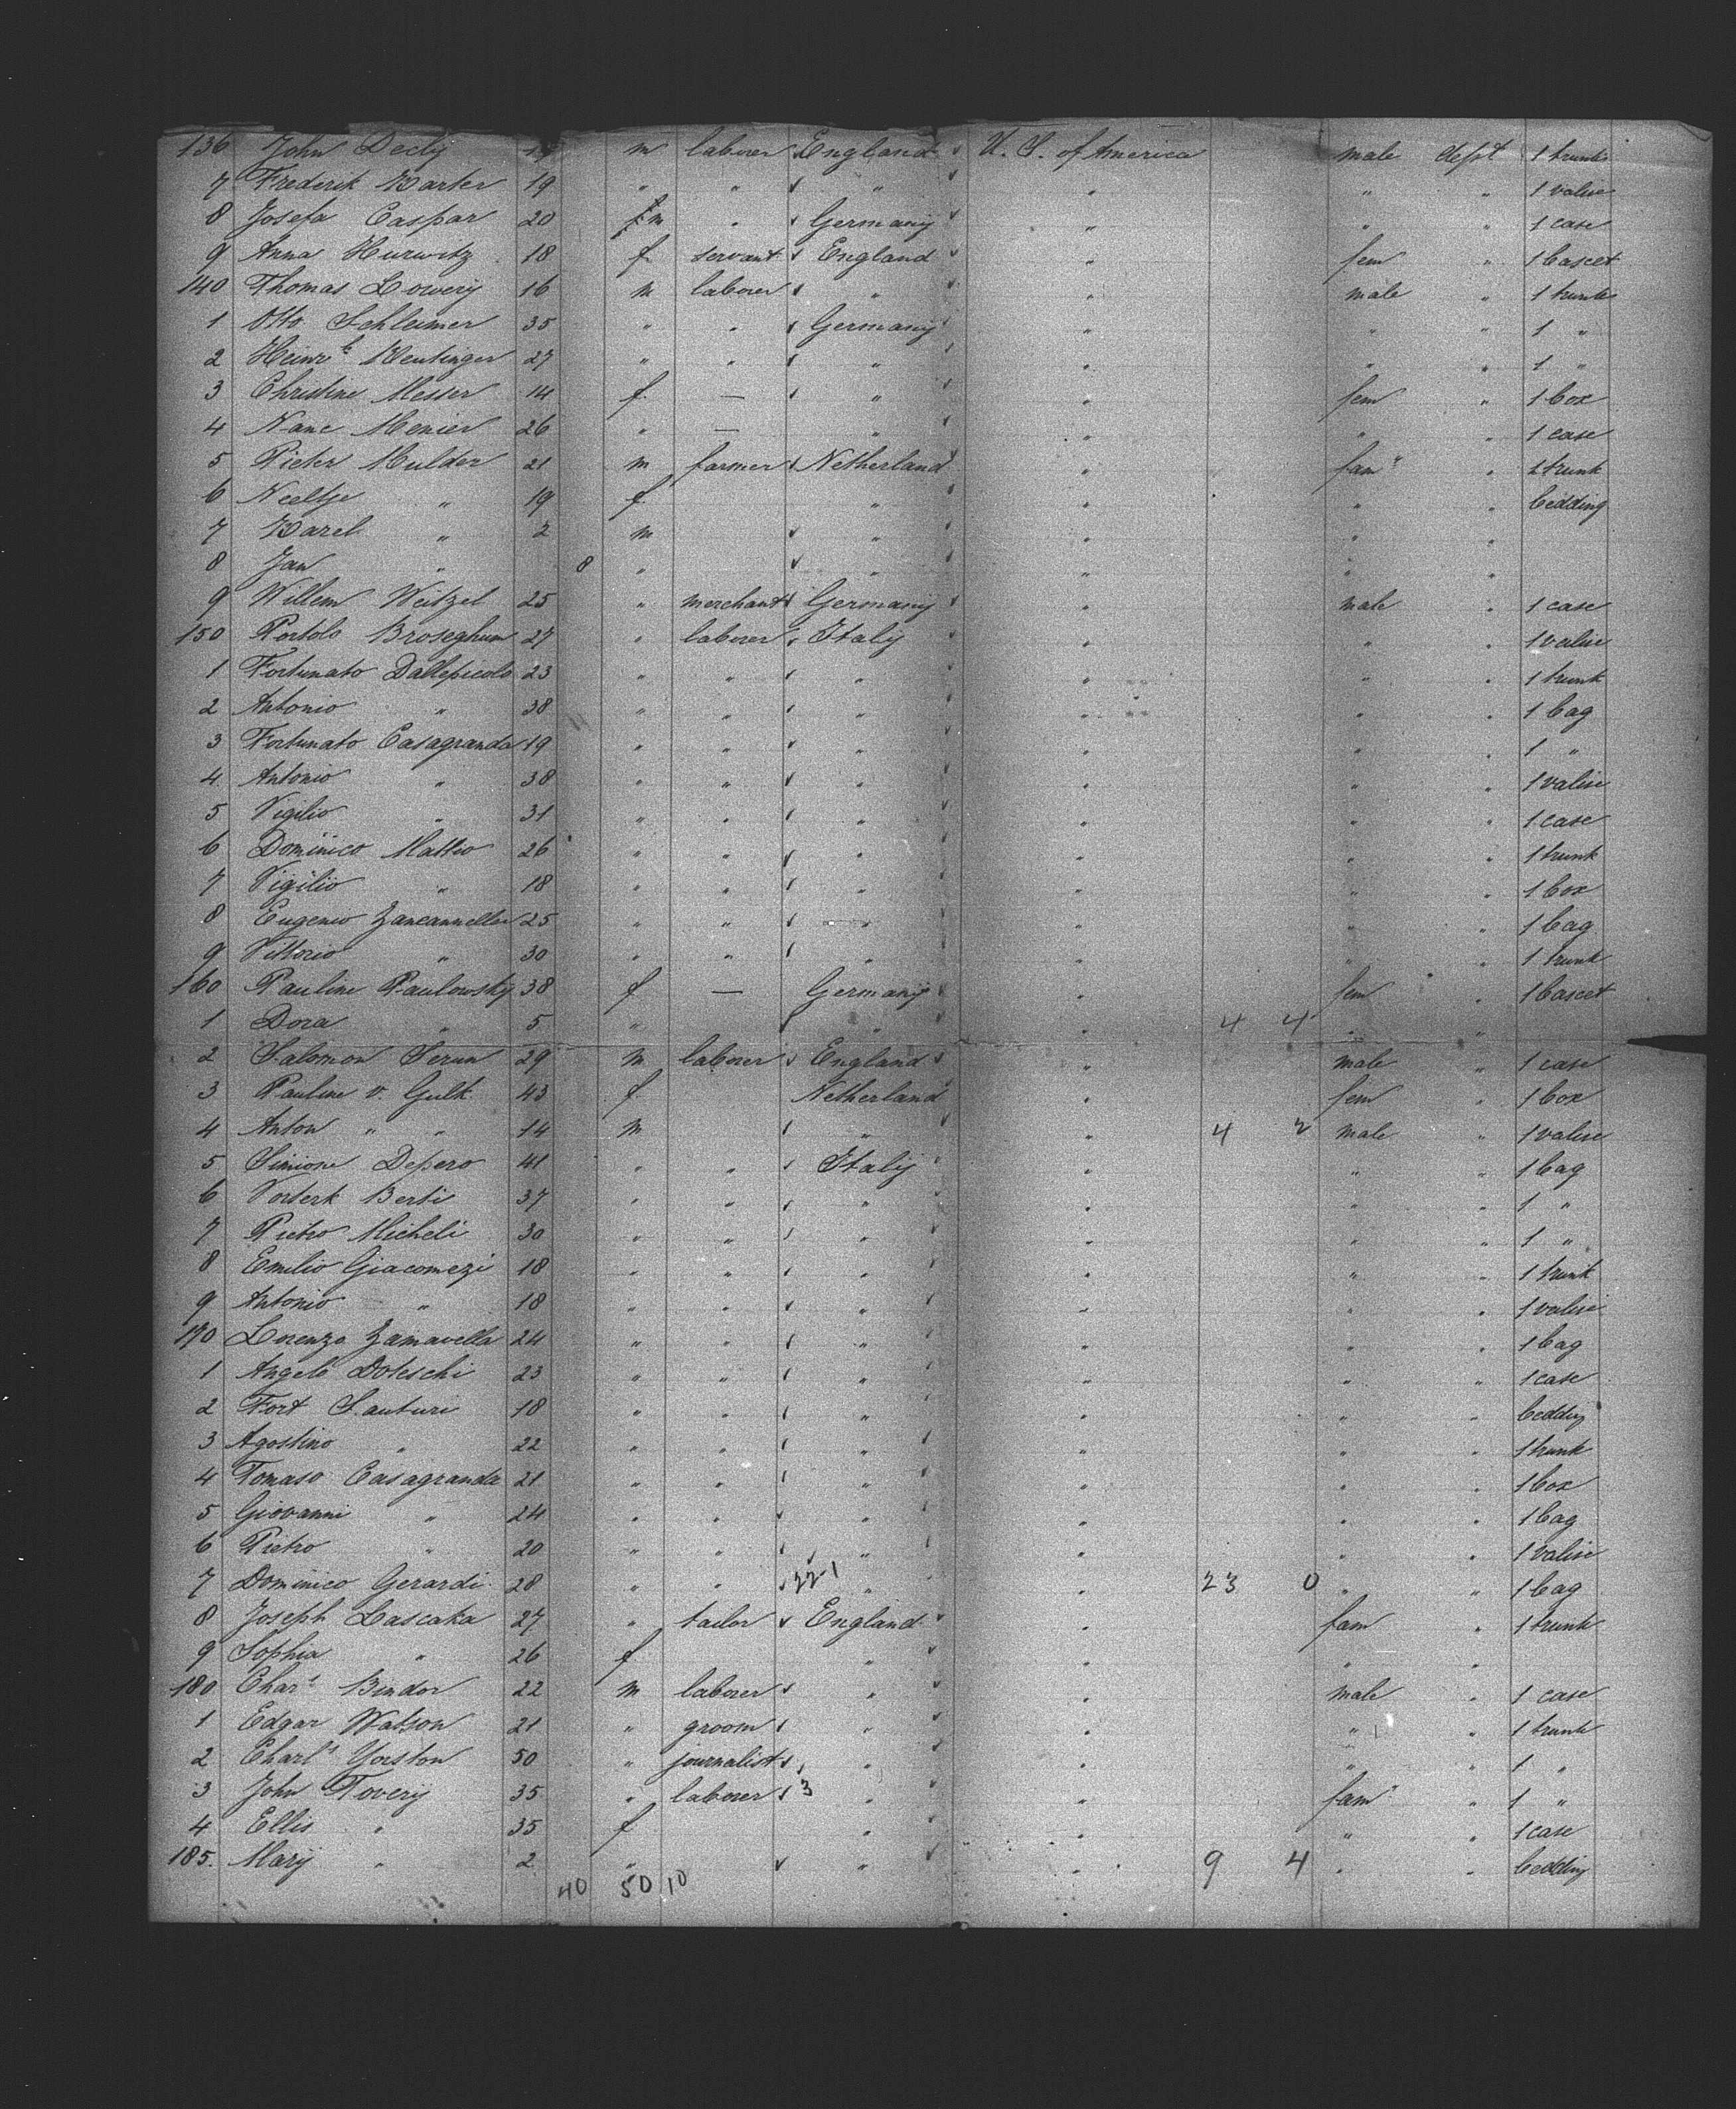 136 John Decly 19 m laborer England U. S. of America male dept 1 trunk
7 Frederik Karter 19 " " " " " " 1 valise
8 Josefa Caspar 20 m " Germany " " " 1 case
9 Anna Hurwitz 18 f servant England " fem " 1 bascet
140 Thomas Lowery 16 m laborer " " male " 1 trunk
1 Otto Schleimer 35 " " Germany " " " 1 "
2 Heinr Kentinger 27 " " " " " " 1 "
3 Christine Messer 14 f — " " fem " 1 box
4 Nanc Menier 26 " — " " " " 1 case
5 Pieter Mulder 21 m farmer Netherland " fam " 1 trunk
6 Neeltje " 19 f " " " " bedding
7 Karel " 2 m " " " "
8 Jan " 8 " " " " "
9 Willem Weitzel 25 " merchant Germany " male " 1 case
150 Portolo Broseghum 27 " laborer Italy " " " 1 valise
1 Fortunato Dallepicolo 23 " " " " " " 1 trunk
2 Antonio " 38 " " " " " " 1 bag
3 Fortunato Casagranda 19 " " " " " " 1 "
4 Antonio " 38 " " " " " " 1 valise
5 Vigilio " 31 " " " " " " 1 case
6 Dominico Matteo 26 " " " " " " 1 trunk
7 Vigilio " 18 " " " " " " 1 box
8 Eugenio Zancannella 25 " " " " " " 1 bag
9 Vittorio " 30 " " " " " " 1 trunk
160 Pauline Paulowsky 38 f — Germany " fem " 1 bascet
1 Dora " 5 " " " 4 4 " "
2 Salomon Serun 29 m laborer England " male " 1 case
3 Pauline v. Gulk 43 f Netherland " fem " 1 box
4 Anton " " 14 m " " 4 2 male " 1 valise
5 Simione Depero 41 " " Italy " " " 1 bag
6 Berti 37 " " " " " " 1 "
7 Pietro Micheli 30 " " " " " " 1 "
8 Emilio Giacomezi 18 " " " " " " 1 trunk
9 Antonio " 18 " " " " " " 1 valise
170 Lorenzo Zamavella 24 " " " " " " 1 bag
1 Angelo Doteschi 23 " " " " " " 1 case
2 Fort Santuri 18 " " " " " " bedding
3 Agostino " 22 " " " " " " 1 trunk
4 Tomaso Casagranda 21 " " " " " " 1 box
5 Giovanni " 24 " " " " " " 1 bag
6 Pietro " 20 " " " " " " 1 valise
7 Dominico Gerardi 28 " " 22-1 " " 23 0 " " 1 bag
8 Joseph Lascaka 27 " tailor England " fam " 1 trunk
9 Sophia " 26 f " " " "
180 Char Bindor 22 m laborer " " male " 1 case
1 Edgar Watson 21 " groom " " " " 1 trunk
2 Charls Yorston 50 " journalist " " " " 1 "
3 John Tovery 35 " laborer 3 " " fam " 1 "
4 Ellis " 35 f " " " " 1 case
185. Mary " 2 " " " 9 4 " " bedding
40 50 10